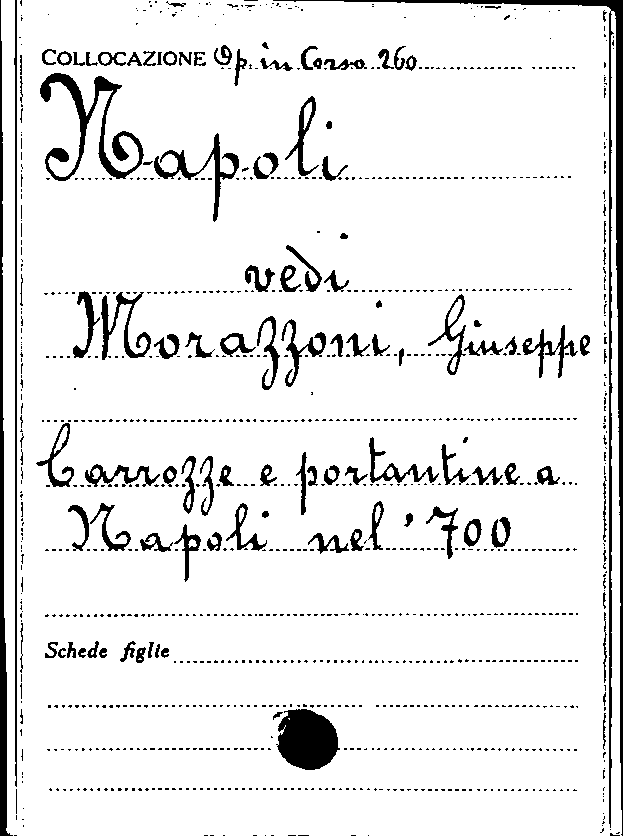 COLLOCAZIONE Op. in Corso 260
Napoli
vedi
Morazzoni, Giuseppe
Carrozze e portantine a
Napoli nel '700
Schede figlie